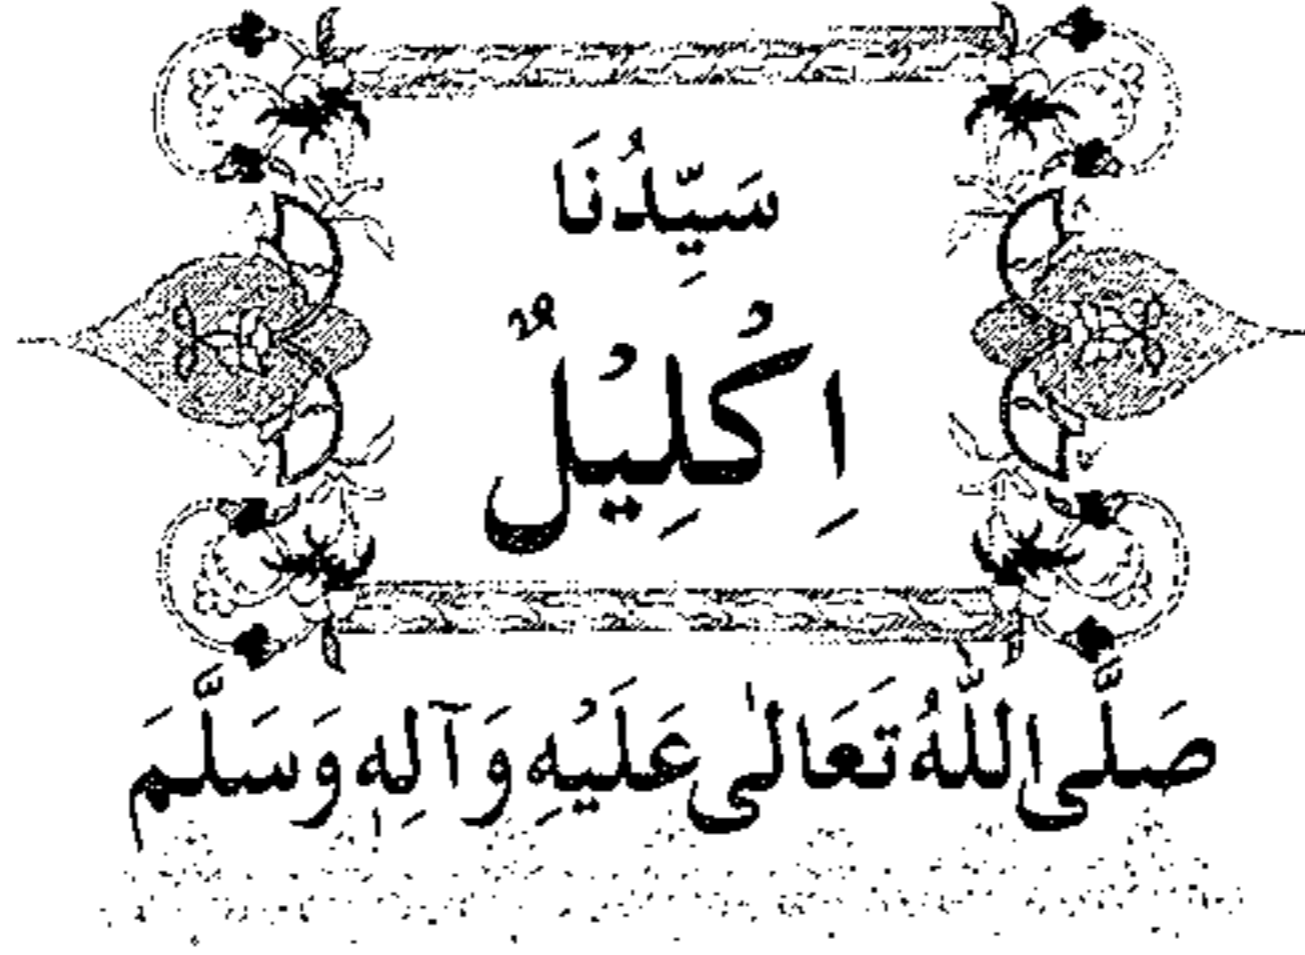 سَيِّدُنَا
اِكْلِيْلٌ
صَلَّى اللّٰهُ تَعَالٰى عَلَيْهِ وَآلِهٖ وَسَلَّمَ